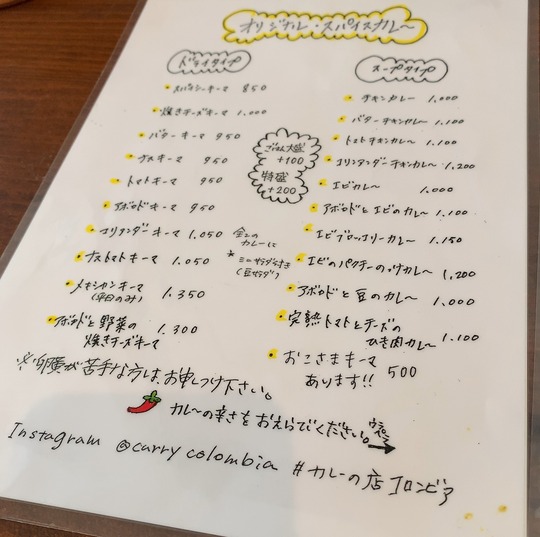 オリジナル・スパイスカレー
ドライタイプ
スパイシーキーマ 850
焼きチーズキーマ 1,000
バターキーマ 950
ナスキーマ 950
トマトキーマ 950
アボカドキーマ 950
コリアンダーキーマ 1,050
ナストマトキーマ 1,050
メキシカンキーマ 1,350
(平日のみ)
アボカドと野菜の 1,300
焼きチーズキーマ
ごはん大盛
+100
特盛
+200
全ての
カレーに
*ミニサラダ付き
(豆サラダ)
スープタイプ
チキンカレー 1,000
バターチキンカレー 1,100
トマトチキンカレー 1,100
コリアンダーチキンカレー 1,200
エビカレー 1,000
アボカドとエビのカレー 1,100
エビブロッコリーカレー 1,150
エビのパクチーのっけカレー 1,200
アボカドと豆のカレー 1,000
完熟トマトとチーズの
ひき肉カレー 1,100
おこさまキーマ 500
あります!!
※卵黄が苦手な方は、お申しつけ下さい。
カレーの辛さをおえらびください。
ウラページ→
Instagram @curry colombia #カレーの店コロンビア